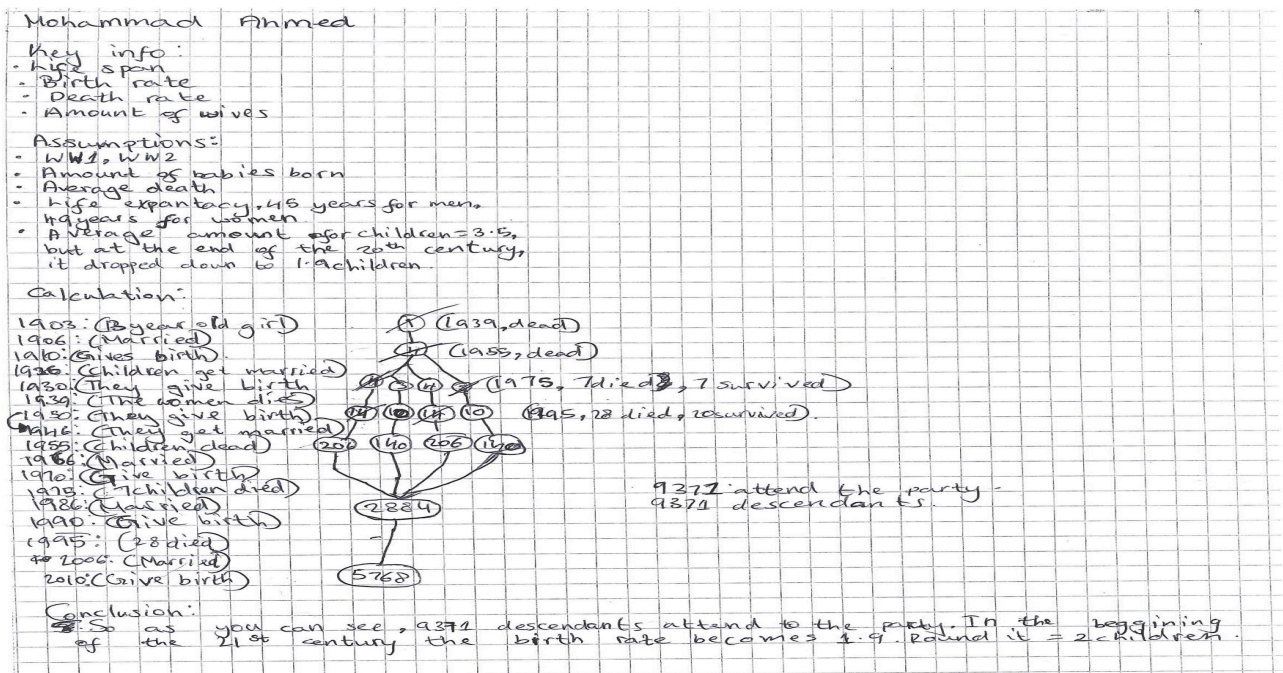 Mohammad Ahmed
Key info:
- Life span
- Birth rate
- Death rate
- Amount of wives
Assumptions:
- WW1, WW2
- Amount of babies born
- Average death
- Life expantacy, 45 years for men,
49 years for women
- Average amount for children = 3.5,
but at the end of the 20th century,
it dropped down to 1.9 children.
Calculation:
1903: (3 year old girl)
1906: (Married)
1910: (Gives birth)
1926: (Children get married)
1930: (They give birth
1939: (The women dies)
1950: (They give birth)
1946: (They get married)
1955: (Children dead)
1966: (Married)
1970: (Give birth)
1975: (7 children died)
1986: (Married)
1990: (Give birth)
1995: (28 died)
2006: (Married)
2010: (Give birth)
(1939, dead)
(1955, dead)
(1975, 7 died, 7 survived)
14 10 14 10 (1995, 28 died, 20 survived).
206 140 206 140
2884
5768
9371 attend the party -
9371 descendants.
Conclusion:
So as you can see, 9371 descendants attend to the party. In the beggining
of the 21st century the birth rate becomes 1.9. Round it = 2 children.